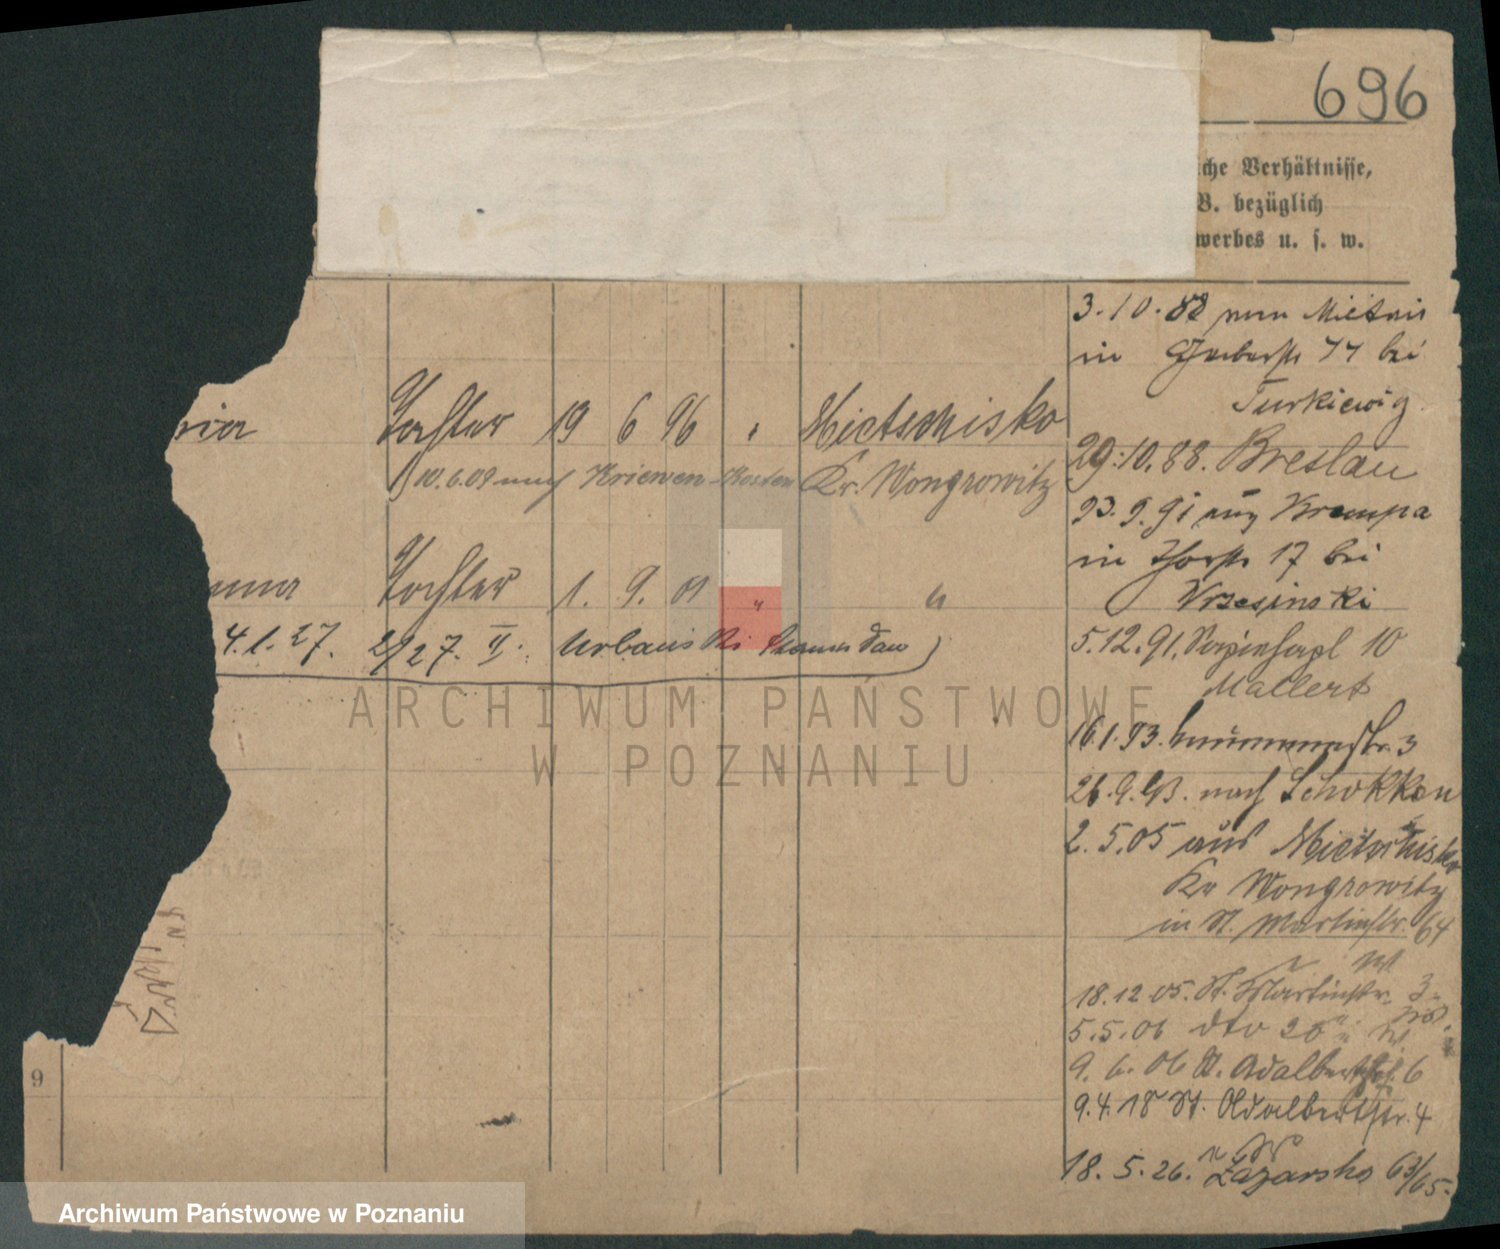 696
che Verhältnisse,
B. bezüglich
werbes u. s. w.
ria Tochter 19 6 96 " Mietschisko
10.6.09 nach Kriewen Kosten Kr. Wongrowitz
nna Tochter 1. 9. 01 " "
4.1.27. 2/27. II. Urbanski
3.10.88 Mietski
in Gerberstr 77 bei
Turkiewig
29.10.88. Breslau
23.9.91 aus Krempa
in Thorstr 17 bei
Wrzesinski
5.12.91. 10
Mallert
16.1.93. str. 3
26.9.93. nach Schokken
2.5.05 aus Mietschisko
Kr Wongrowitz
in St. Martinstr. 64
18.12.05. St. Martinstr. 3
5.5.06 dto 26
9.6.06 St. Adalbertstr. 6
9.4.18 St. Adalbertstr. 4
18.5.26. Łazarska 63/65.
9
ARCHIWUM PAŃSTWOWE
W POZNANIU
Archiwum Państwowe w Poznaniu